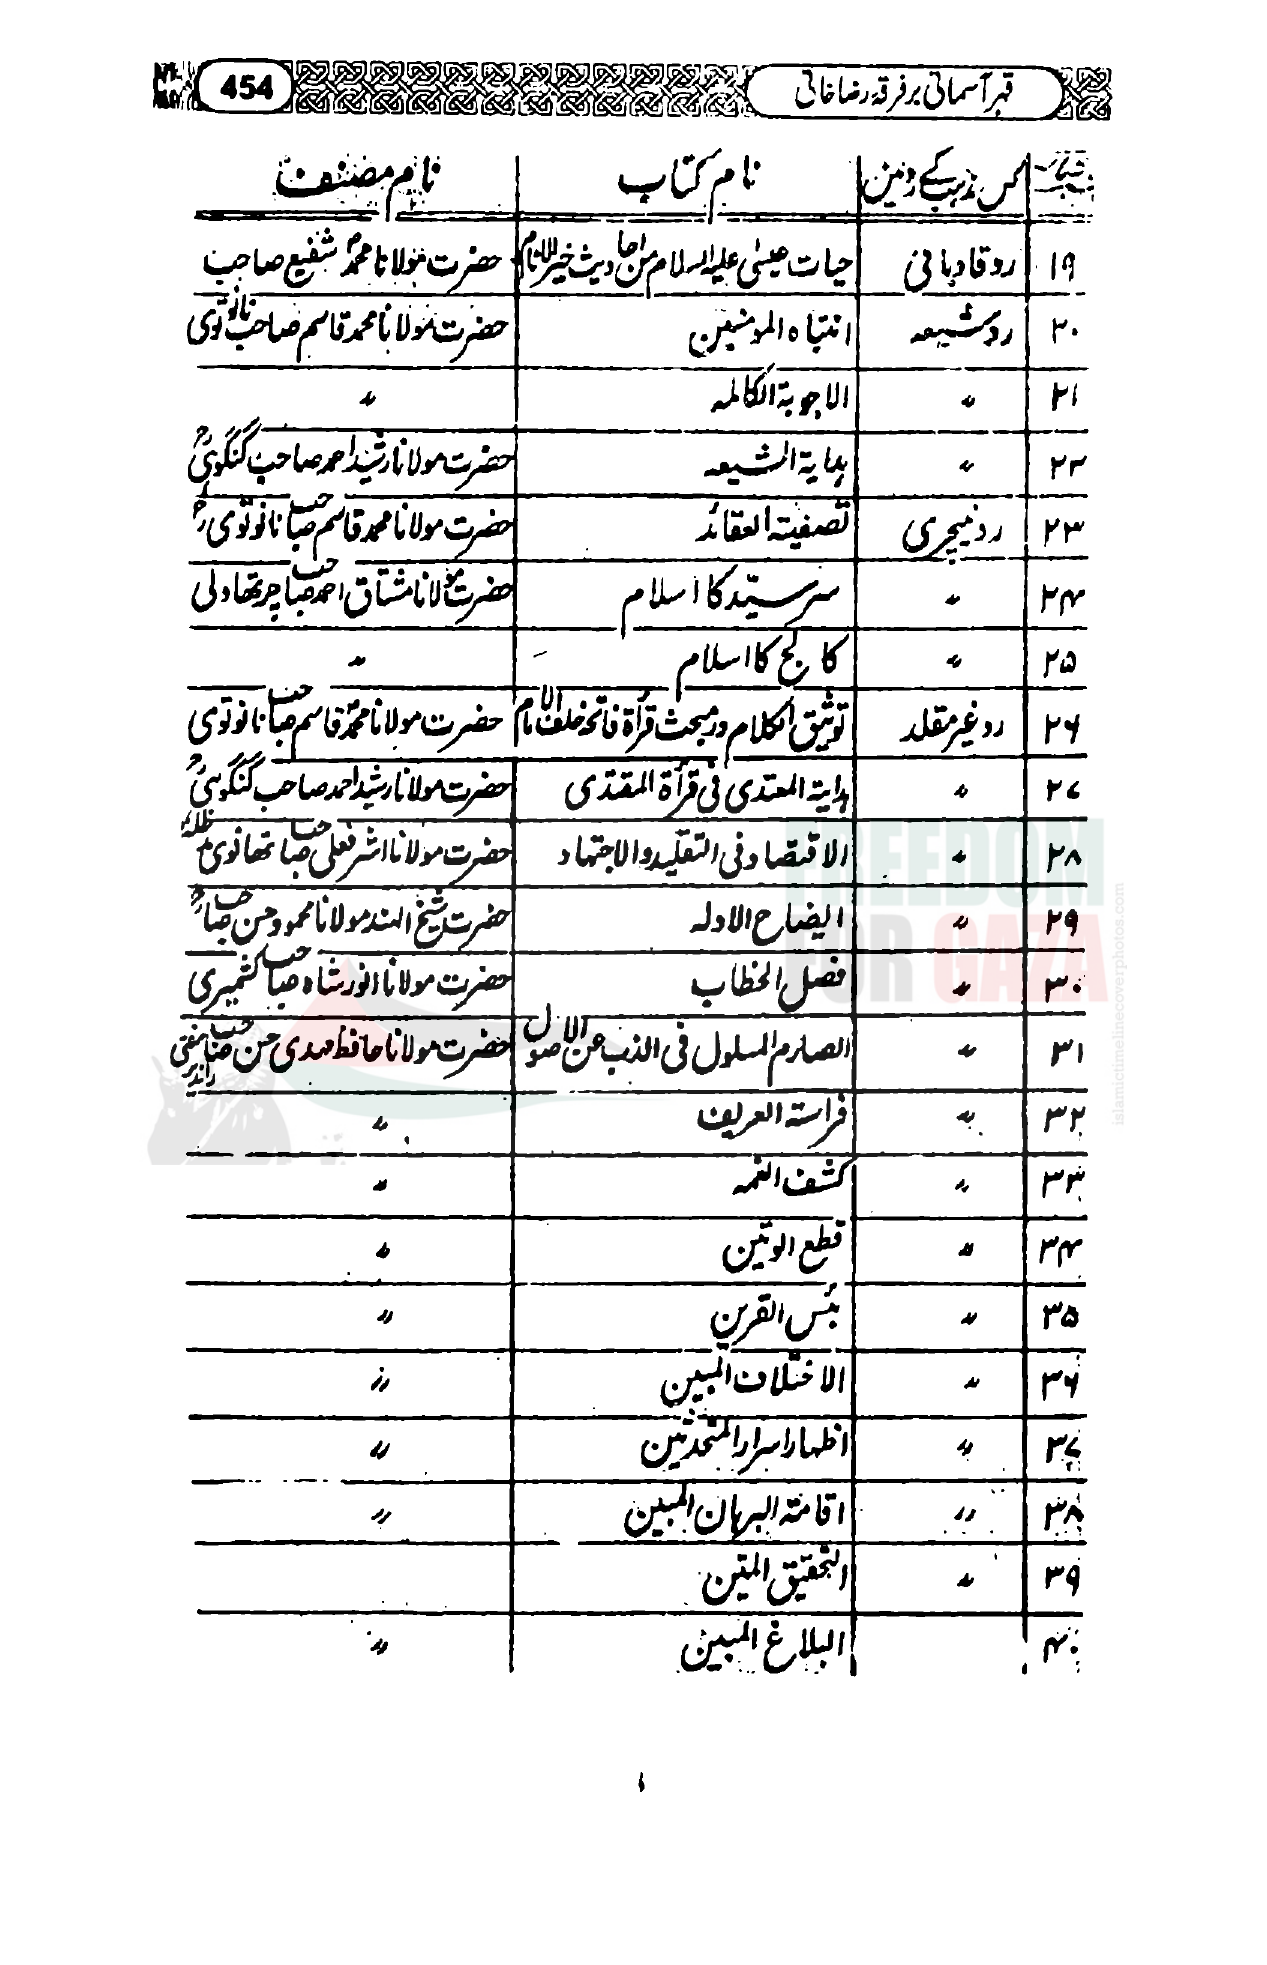 454
قہر آسمانی بر فرقہ رضاخانی
کس مذہب کے رد میں نام کتاب نام مصنف
۱۹ رد قادیانی حیات عیسیٰ علیہ السلام من احادیث خیر الانام حضرت مولانا محمد شفیع صاحب
۲۰ رد شیعہ انتباہ المومنین حضرت مولانا محمد قاسم صاحب نانوتوی
۲۱ 〃 الاجوبۃ الکاملہ 〃
۲۲ 〃 ہدایۃ الشیعہ حضرت مولانا رشید احمد صاحب گنگوہیؒ
۲۳ رد نیچری تصفیتہ العقائد حضرت مولانا محمد قاسم صاحب نانوتویؒ
۲۴ 〃 سرسیّد کا اسلام حضرت مولانا مشتاق احمد صاحب چرتھاولی
۲۵ 〃 کالج کا اسلام 〃
۲۶ رد غیر مقلد توثیق الکلام در مبحث قرأۃ فاتحہ خلف الامام حضرت مولانا محمد قاسم صاحب نانوتوی
۲۷ 〃 ہدایتہ المعتدی فی قرأۃ المقتدی حضرت مولانا رشید احمد صاحب گنگوہیؒ
۲۸ 〃 الاقتصاد فی التقلید والاجتہاد حضرت مولانا اشرفعلی صاحب تھانوی مدظلہ
۲۹ 〃 ایضاح الادلہ حضرت شیخ الہند مولانا محمود حسن صاحبؒ
۳۰ 〃 فصل الخطاب حضرت مولانا انور شاہ صاحب کشمیری
۳۱ 〃 الصارم المسلول فی الذب عن الاصول حضرت مولانا حافظ مہدی حسن صاحب مفتی راندیر
۳۲ 〃 فراستہ العریف 〃
۳۳ 〃 کشف الغمہ 〃
۳۴ 〃 قطع الوتین 〃
۳۵ 〃 بئس القرین 〃
۳۶ 〃 الاختلاف المبین 〃
۳۷ 〃 اظہار اسرار المتحدثین 〃
۳۸ 〃 اقامتہ البرہان المبین 〃
۳۹ 〃 التحقیق المتین
۴۰ البلاغ المبین 〃
FREEDOM
FOR GAZA
islamictimelinecoverphotos.com